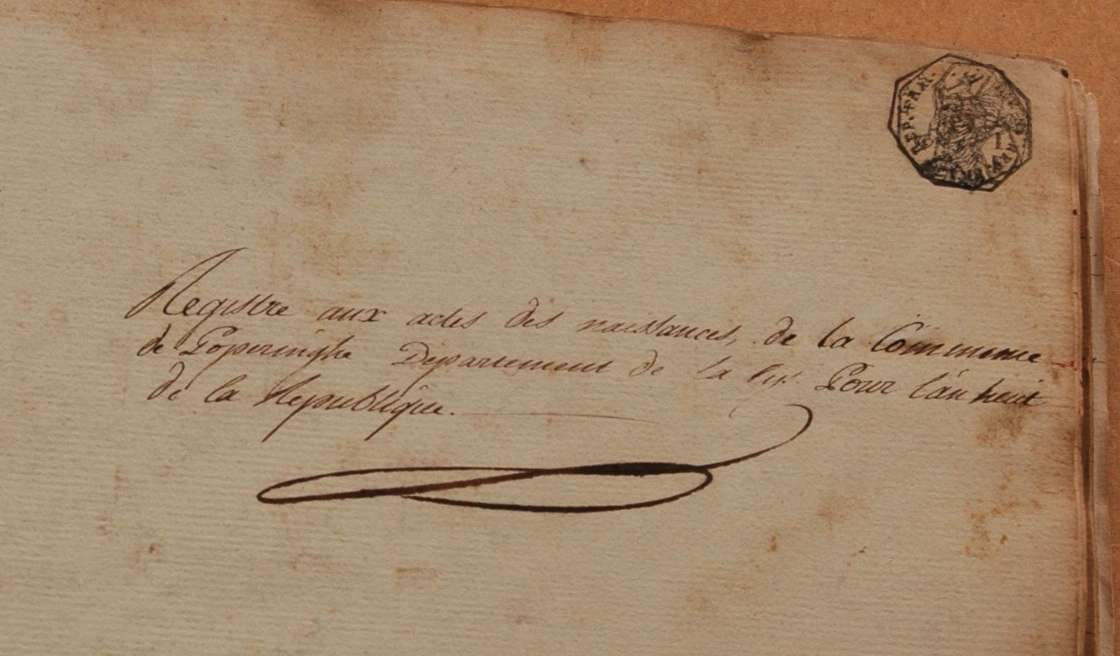 REP. FRA.
Registre aux actes des naissances, de la Commune
de Poperinghe Departement de la Lys Pour l'an huit
de la Republique.